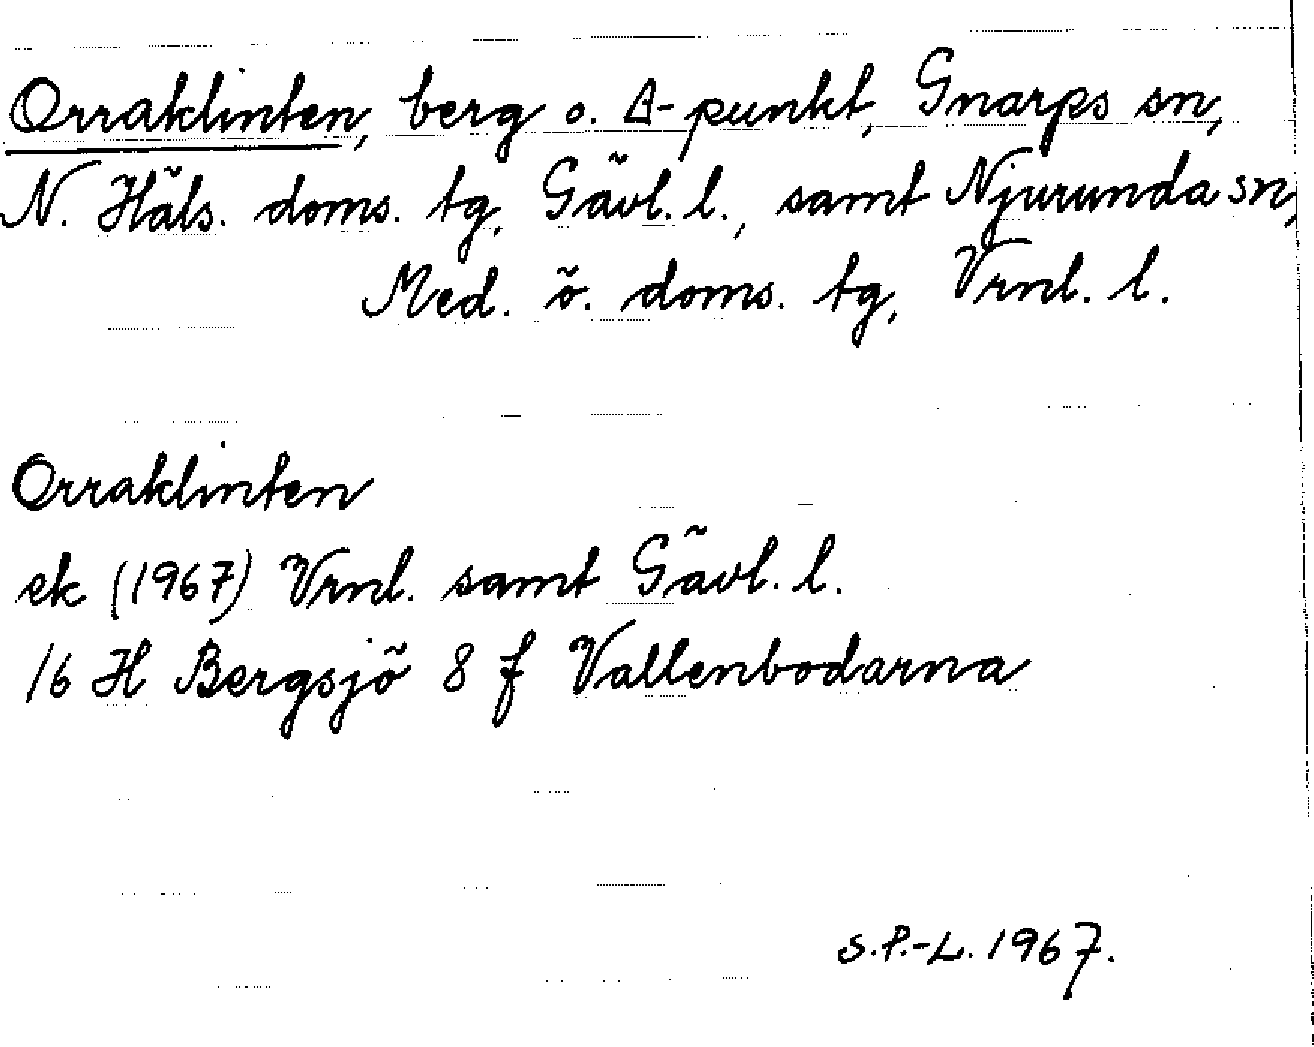 Orraklinten, berg o. Δ-punkt, Gnarps sn,
N. Häls. doms. tg, Gävl. l., samt Njurunda sn,
Med. ö. doms. tg, Vrnl. l.
Orraklinten
ek (1967) Vrnl. samt Gävl. l.
16 H Bergsjö 8 f Vallenbodarna
S.P.-L. 1967.